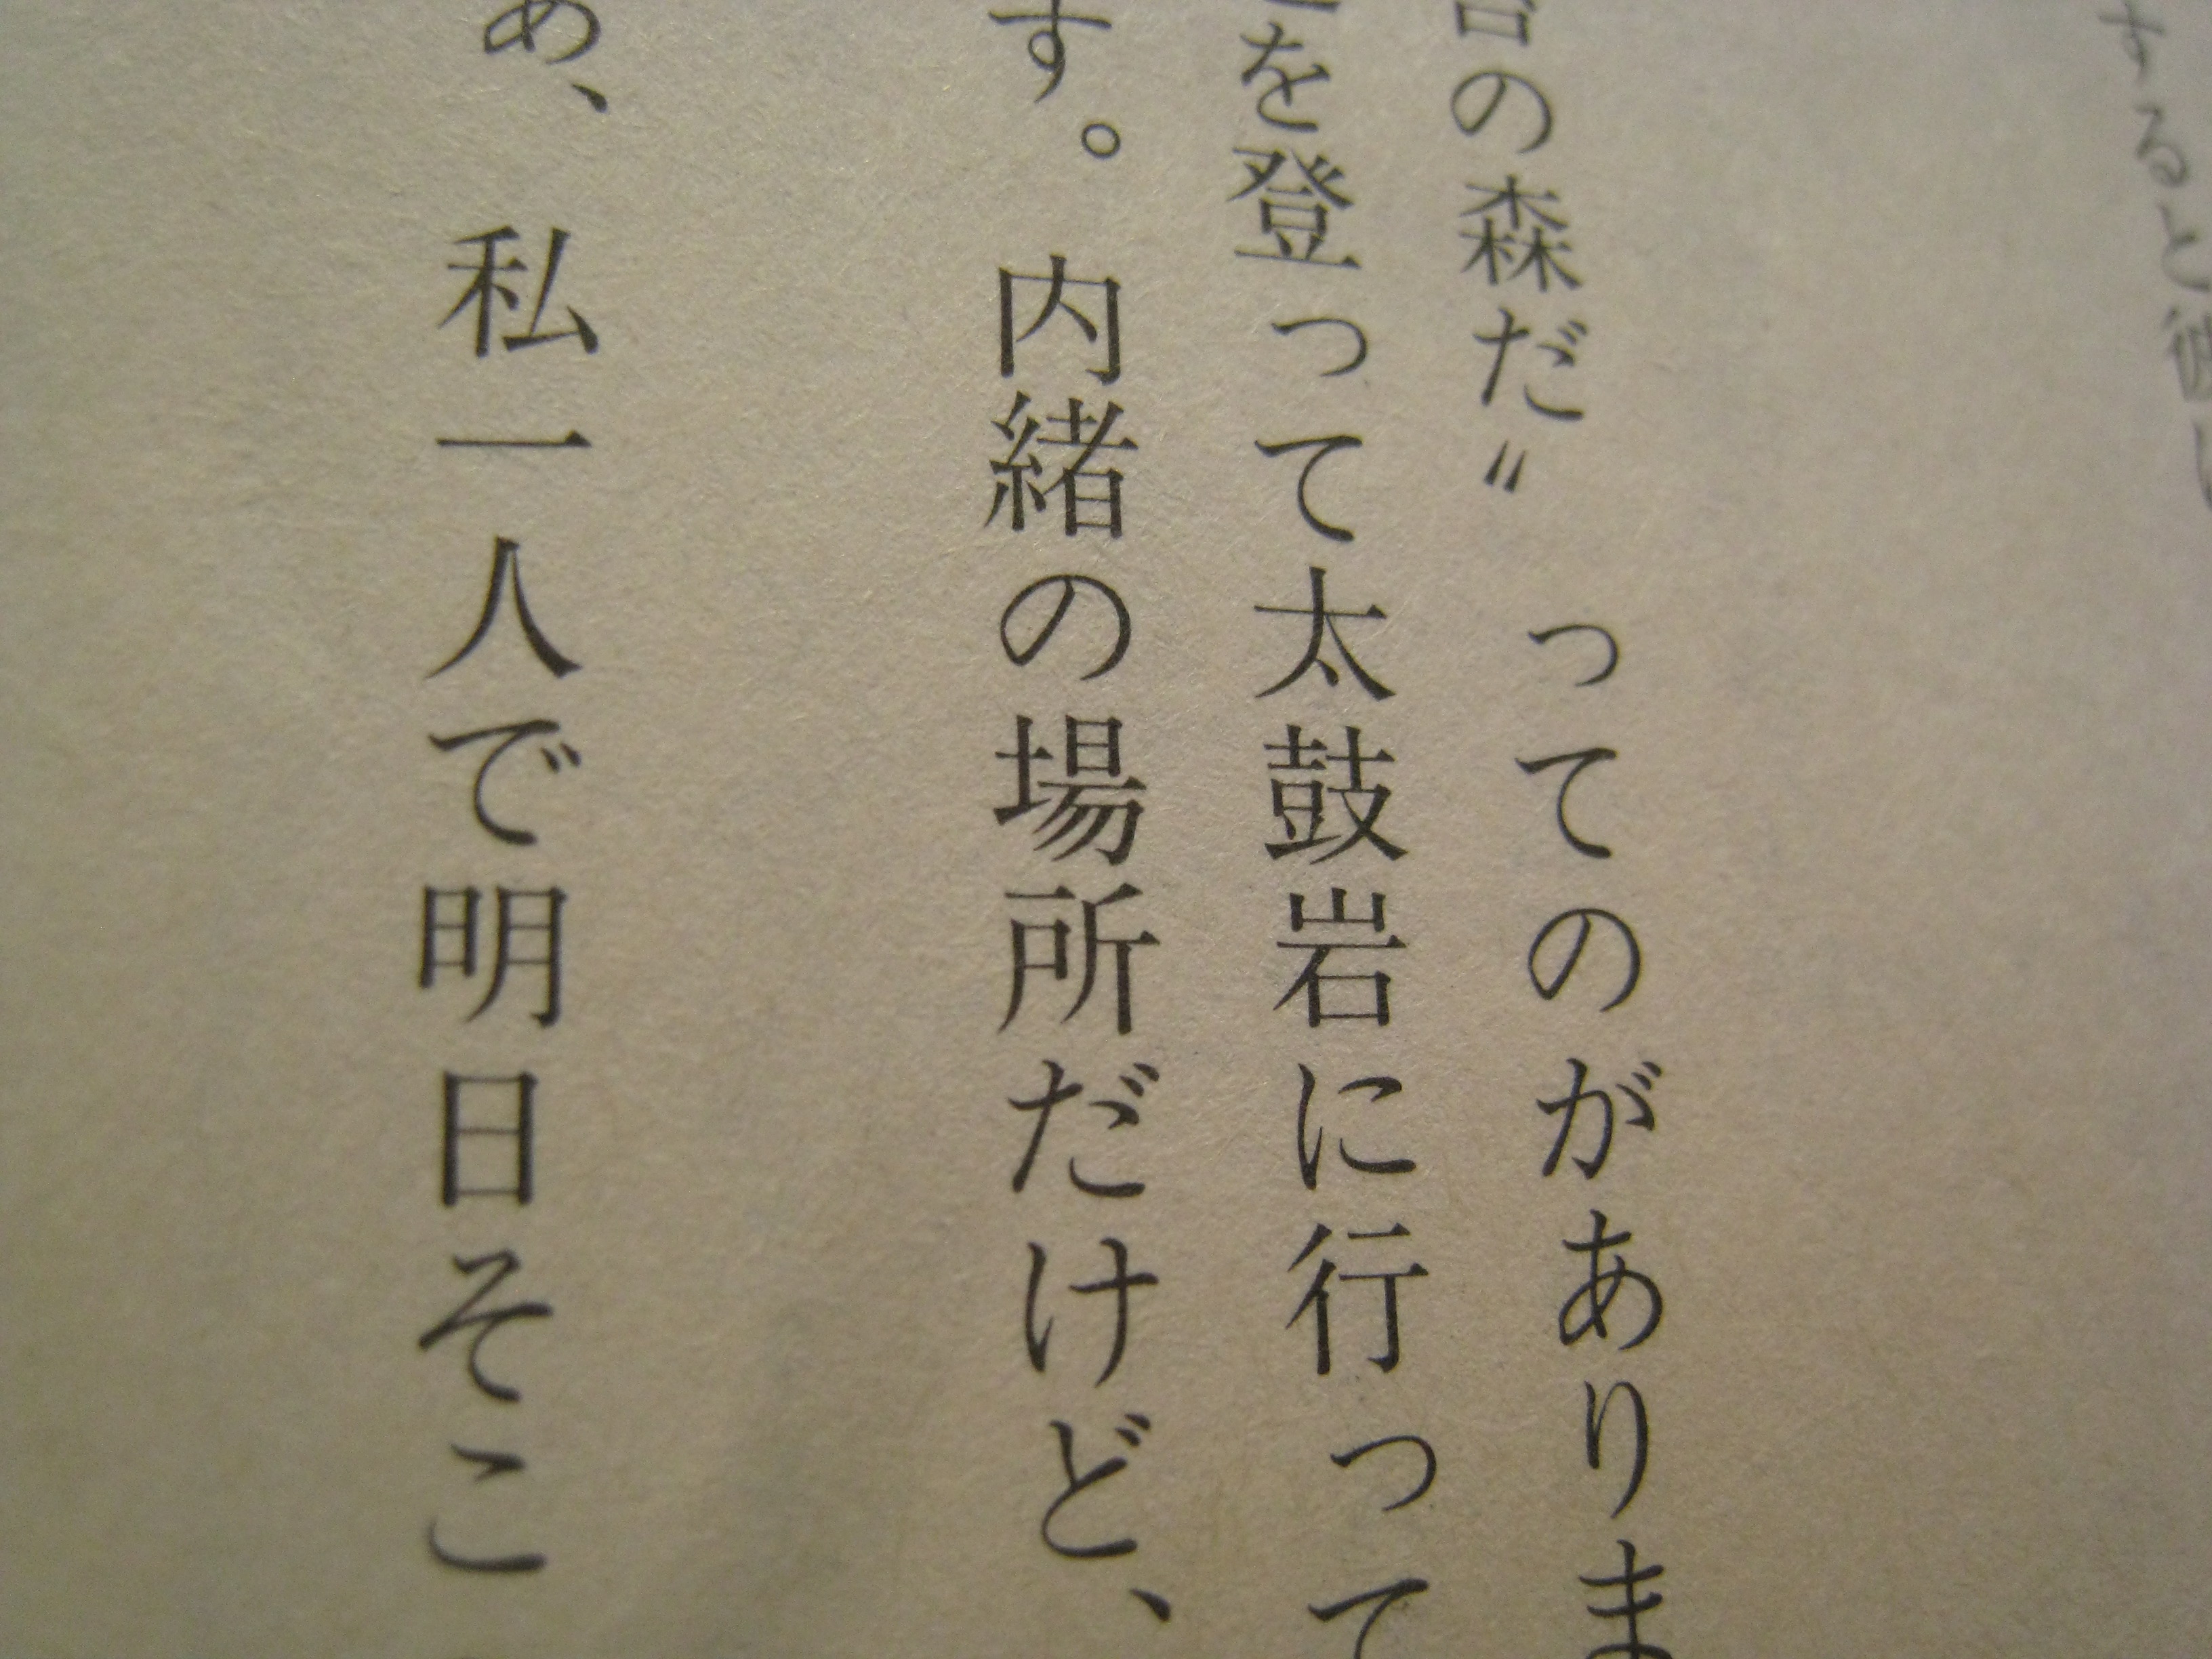 すると
の森だ〟ってのがありま
を登って太鼓岩に行って
す。内緒の場所だけど、
あ、私一人で明日そこ